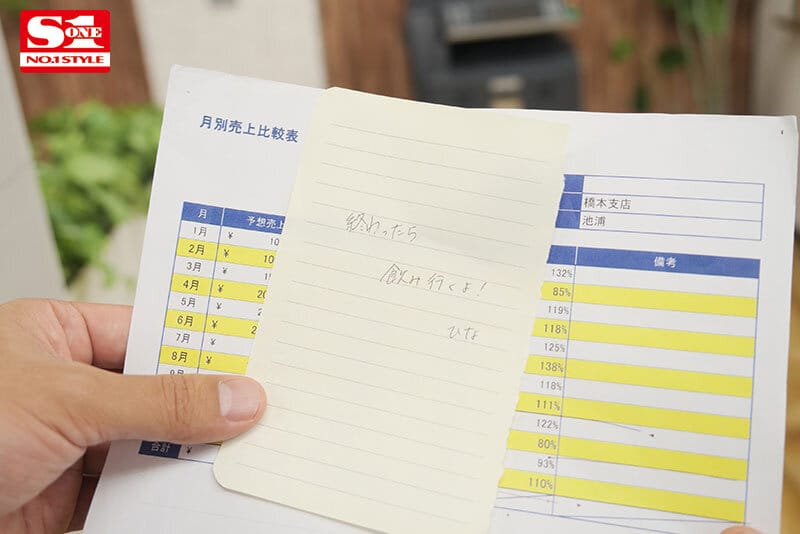 S1
ONE
NO.1 STYLE
月別売上比較表
橋本支店
池浦
月
予想売上
備考
1月 ¥ 10
2月 ¥ 10
3月 ¥
4月 ¥ 20
5月 ¥
6月 ¥ 2
7月 ¥
8月 ¥
合計 ¥
終わったら
飲み行くよ!
ひな
132%
85%
119%
118%
125%
138%
118%
111%
122%
80%
93%
110%